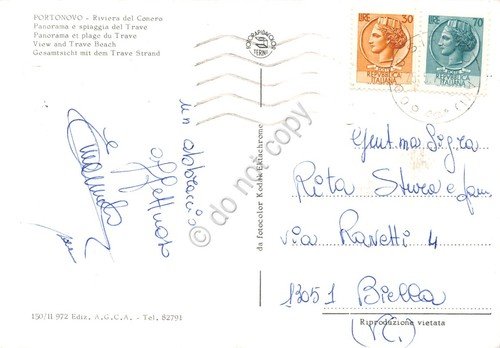 PORTONOVO - Riviera del Conero
Panorama e spiaggia del Trave
Panorama et plage du Trave
View and Trave Beach
Gesamtsicht mit dem Trave Strand
FOTORAPIDACOLOR
TERNI
LIRE 30
REPUBBLICA ITALIANA
LIRE 70
REPUBBLICA ITALIANA
un abbraccio
affettuoso
da fotocolor Kodak Ektachrome
© do not copy
Gent.ma Sig.ra
Rita Stura e fam
via Ravetti 4
13051 Biella
(VC.)
150/II 972 Ediz. A.G.C.A. - Tel. 82791
Riproduzione vietata